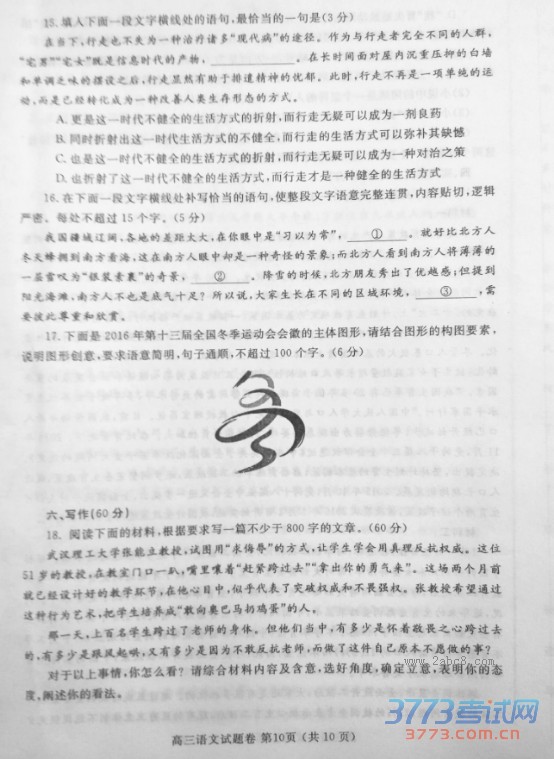 15. 填入下面一段文字横线处的语句,最恰当的一句是(3 分)
在当下,行走也不失为一种治疗诸多“现代病”的途径。作为与行走者完全不同的人群,
“宅男”“宅女”既是信息时代的产物,____________。在长时间面对屋内沉重压抑的白墙
和单调乏味的摆设之后,行走显然有助于排遣精神的忧郁。此时,行走不再是一项单纯的运
动,而是已经转化成为一种改善人类生存形态的方式。
A. 更是这一时代不健全的生活方式的折射,而行走无疑可以成为一剂良药
B. 同时折射出这一时代生活方式的不健全,而行走的生活方式可以弥补其缺憾
C. 也是这一时代不健全的生活方式的折射,而行走无疑可以成为一种对治之策
D. 也折射了这一时代不健全的生活方式,而行走才是一种健全的生活方式
16. 在下面一段文字横线处补写恰当的语句,使整段文字语意完整连贯,内容贴切,逻辑
严密。每处不超过 15 个字。(5 分)
我国疆域辽阔,各地的差距太大,在你眼中是“习以为常”,____①____。就好比北方人
冬天蜂拥到南方看海,这在南方人眼中却是一种奇怪的景象;而北方人看到南方人将薄薄的
一层雪叹为“银装素裹”的奇景,____②____。降雪的时候,北方朋友秀出了优越感;但提到
阳光海滩,南方人不也是底气十足?所以说,大家生长在不同的区域环境,____③____,需
要彼此尊重和欣赏。
17. 下面是 2016 年第十三届全国冬季运动会会徽的主体图形,请结合图形的构图要素,
说明图形创意,要求语意简明,句子通顺,不超过 100 个字。(6 分)
六、写作(60 分)
18. 阅读下面的材料,根据要求写一篇不少于 800 字的文章。(60 分)
武汉理工大学张能立教授,试图用“求侮辱”的方式,让学生学会用真理反抗权威。这位
51 岁的教授,在教室门口一趴,嘴里嚷着“赶紧跨过去”“拿出你的勇气来”。这场两个月前
就已经设计好的教学环节,在他心目中,似乎代表了突破权威和不畏强权。张教授希望通过
这种行为艺术,把学生培养成“敢向奥巴马扔鸡蛋”的人。
那一天,上百名学生跨过了老师的身体。但他们当中,有多少是怀着敬畏之心跨过去
的,有多少是跟风起哄,又有多少是因为不敢反抗老师,而做了这件自己原本不愿做的事?
对于以上事情,你怎么看?请综合材料内容及含意,选好角度,确定立意,表明你的态
度,阐述你的看法。
www.2abc8.com
高三语文试题卷 第10页 (共 10 页)
3773考试网
3773.com.cn